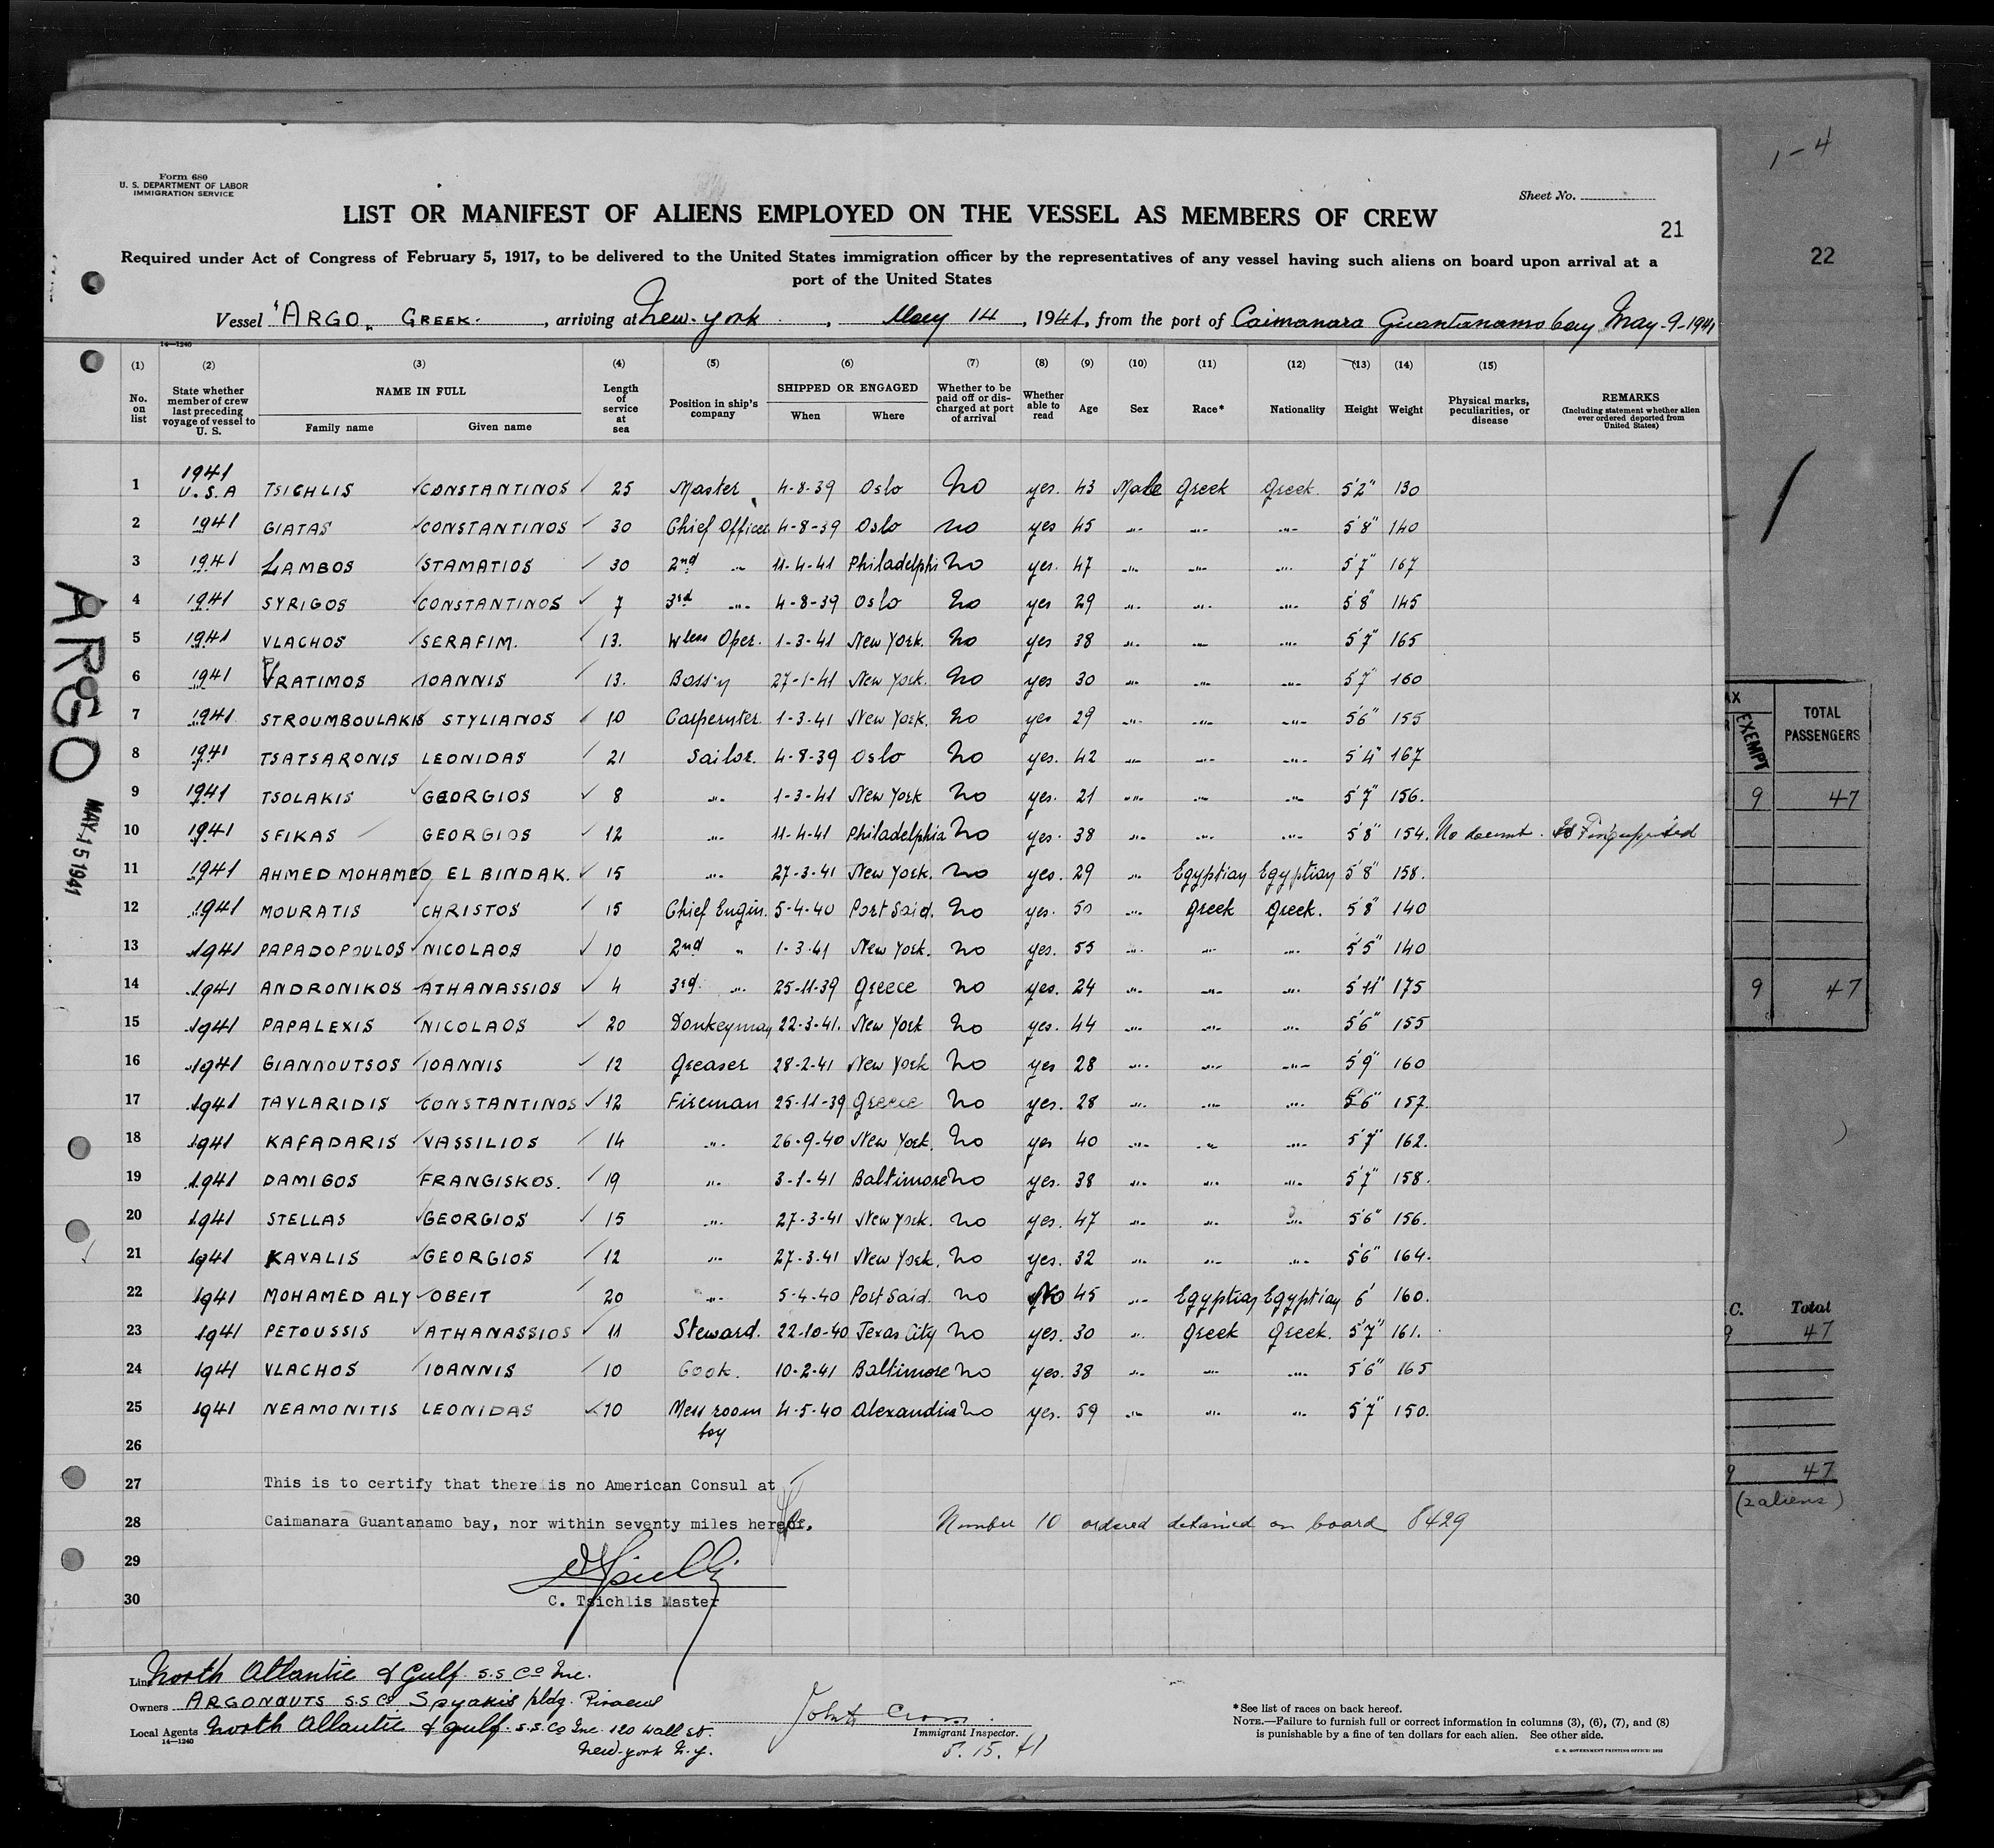 Form 680
U. S. DEPARTMENT OF LABOR
IMMIGRATION SERVICE
Sheet No.
LIST OR MANIFEST OF ALIENS EMPLOYED ON THE VESSEL AS MEMBERS OF CREW
21
Required under Act of Congress of February 5, 1917, to be delivered to the United States immigration officer by the representatives of any vessel having such aliens on board upon arrival at a
port of the United States
Vessel "ARGO„ GREEK. , arriving at New-york , May 14 , 1941, from the port of Caimanara Guantanamo bay May-9-1941
14—1240
(1) (2) (3) (4) (5) (6) (7) (8) (9) (10) (11) (12) (13) (14) (15)
No. on list State whether member of crew last preceding voyage of vessel to U. S. NAME IN FULL Family name Given name Length of service at sea Position in ship's company SHIPPED OR ENGAGED When Where Whether to be paid off or discharged at port of arrival Whether able to read Age Sex Race* Nationality Height Weight Physical marks, peculiarities, or disease REMARKS (Including statement whether alien ever ordered deported from United States)
1 1941 U.S.A TSICHLIS CONSTANTINOS 25 Master 4-8-39 Oslo No yes. 43 Male Greek Greek. 5'2" 130
2 1941 GIATAS CONSTANTINOS 30 Chief Officer 4-8-39 Oslo no yes 45 -"- -"- -"- 5'8" 140
3 1941 LAMBOS STAMATIOS 30 2nd -"- 11-4-41 Philadelphi No yes. 47 -"- -"- -"- 5'7" 167
4 1941 SYRIGOS CONSTANTINOS 7 3rd -"- 4-8-39 Oslo No yes 29 -"- -"- -"- 5'8" 145
5 1941 VLACHOS SERAFIM. 13. Wless Oper. 1-3-41 New York. No yes 38 -"- -"- -"- 5'7" 165
6 1941 VRATIMOS IOANNIS 13. Boss'n 27-1-41 New York. No yes 30 -"- -"- -"- 5'7" 160
7 1941 STROUMBOULAKIS STYLIANOS 10 Carpernter. 1-3-41 New York. No yes 29 -"- -"- -"- 5'6" 155
8 1941 TSATSARONIS LEONIDAS 21 Sailor. 4-8-39 Oslo No yes. 42 -"- -"- -"- 5'4" 167
9 1941 TSOLAKIS GEORGIOS 8 -"- 1-3-41 New York No yes. 21 -"- -"- -"- 5'7" 156.
10 1941 SFIKAS GEORGIOS 12 -"- 11-4-41 Philadelphia No yes. 38 -"- -"- -"- 5'8" 154. No docmt. Fingerprinted
11 1941 AHMED MOHAMED EL BINDAK. 15 -"- 27-3-41 New York. No yes. 29 -"- Egyptian Egyptian 5'8" 158.
12 1941 MOURATIS CHRISTOS 15 Chief Engin. 5-4-40 Port Said. No yes. 50 -"- Greek Greek. 5'8" 140
13 1941 PAPADOPOULOS NICOLAOS 10 2nd " 1-3-41 New York. No yes. 55 -"- -"- -"- 5'5" 140
14 1941 ANDRONIKOS ATHANASSIOS 4 3rd. -"- 25-11-39 Greece No yes. 24 -"- -"- -"- 5'11" 175
15 1941 PAPALEXIS NICOLAOS 20 Donkeyman 22-3-41. New York No yes. 44 -"- -"- -"- 5'6" 155
16 1941 GIANNOUTSOS IOANNIS 12 Greaser 28-2-41 New York No yes 28 -"- -"- -"- 5'9" 160
17 1941 TAVLARIDIS CONSTANTINOS 12 Fireman 25-11-39 Greece No yes. 28 -"- -"- -"- 5'6" 157.
18 1941 KAFADARIS VASSILIOS 14 -"- 26-9-40 New York. No yes 40 -"- -"- -"- 5'7" 162.
19 1941 DAMIGOS FRANGISKOS. 19 -"- 3-1-41 Baltimore No yes. 38 -"- -"- -"- 5'7" 158.
20 1941 STELLAS GEORGIOS 15 -"- 27-3-41 New York. No yes. 47 -"- -"- -"- 5'6" 156.
21 1941 KAVALIS GEORGIOS 12 -"- 27-3-41 New York. No yes. 32 -"- -"- -"- 5'6" 164.
22 1941 MOHAMED ALY OBEIT 20 -"- 5-4-40 Port Said. No No 45 -"- Egyptian Egyptian 6' 160.
23 1941 PETOUSSIS ATHANASSIOS 11 Steward. 22-10-40 Texas City No yes. 30 -"- Greek Greek. 5'7" 161.
24 1941 VLACHOS IOANNIS 10 Cook. 10-2-41 Baltimore No yes. 38 -"- -"- -"- 5'6" 165
25 1941 NEAMONITIS LEONIDAS 10 Mess room boy 4-5-40 Alexandria No yes. 59 -"- -"- -"- 5'7" 150.
26
27 This is to certify that there is no American Consul at
28 Caimanara Guantanamo bay, nor within seventy miles hereof. Number 10 ordered detained on board 8429
29
30 C. Tsichlis Master
Line North Atlantic & Gulf S.S Co Inc.
Owners ARGONAUTS S.S Co Spyakis bldg. Piraeus
Local Agents North Atlantic & Gulf. S.S. Co Inc. 120 Wall st.
14—1240
New-york N.y.
John Cross
Immigrant Inspector.
5. 15. 41
*See list of races on back hereof.
NOTE.—Failure to furnish full or correct information in columns (3), (6), (7), and (8)
is punishable by a fine of ten dollars for each alien. See other side.
U. S. GOVERNMENT PRINTING OFFICE
ARGO
MAY 15 1941
1-4
22
EXEMPT
TOTAL PASSENGERS
9 47
9 47
C. Total
9 47
9 47
(2 aliens)